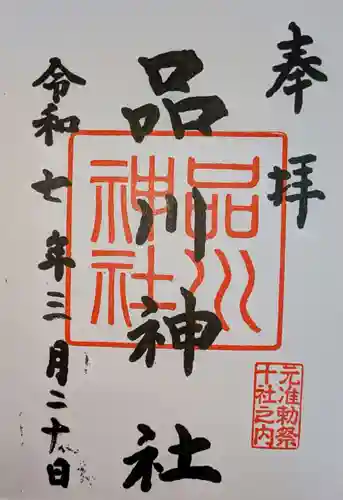 奉拝
品川神社
令和七年三月二十日
品川
神社
元准勅祭
十社之内